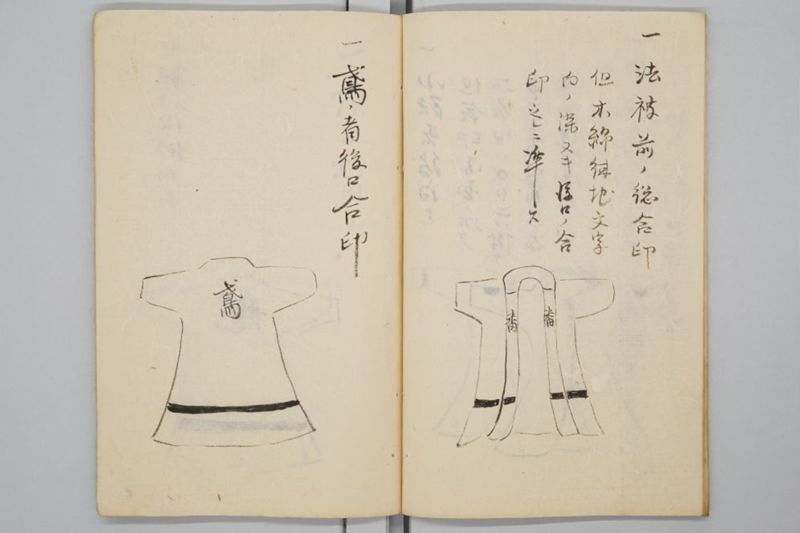 一 法被前ノ総合印
但木綿紺地文字
内ノ深ヌキ後口ノ合
印之ニ準ス
一 鳶ノ者後口合印
鳶